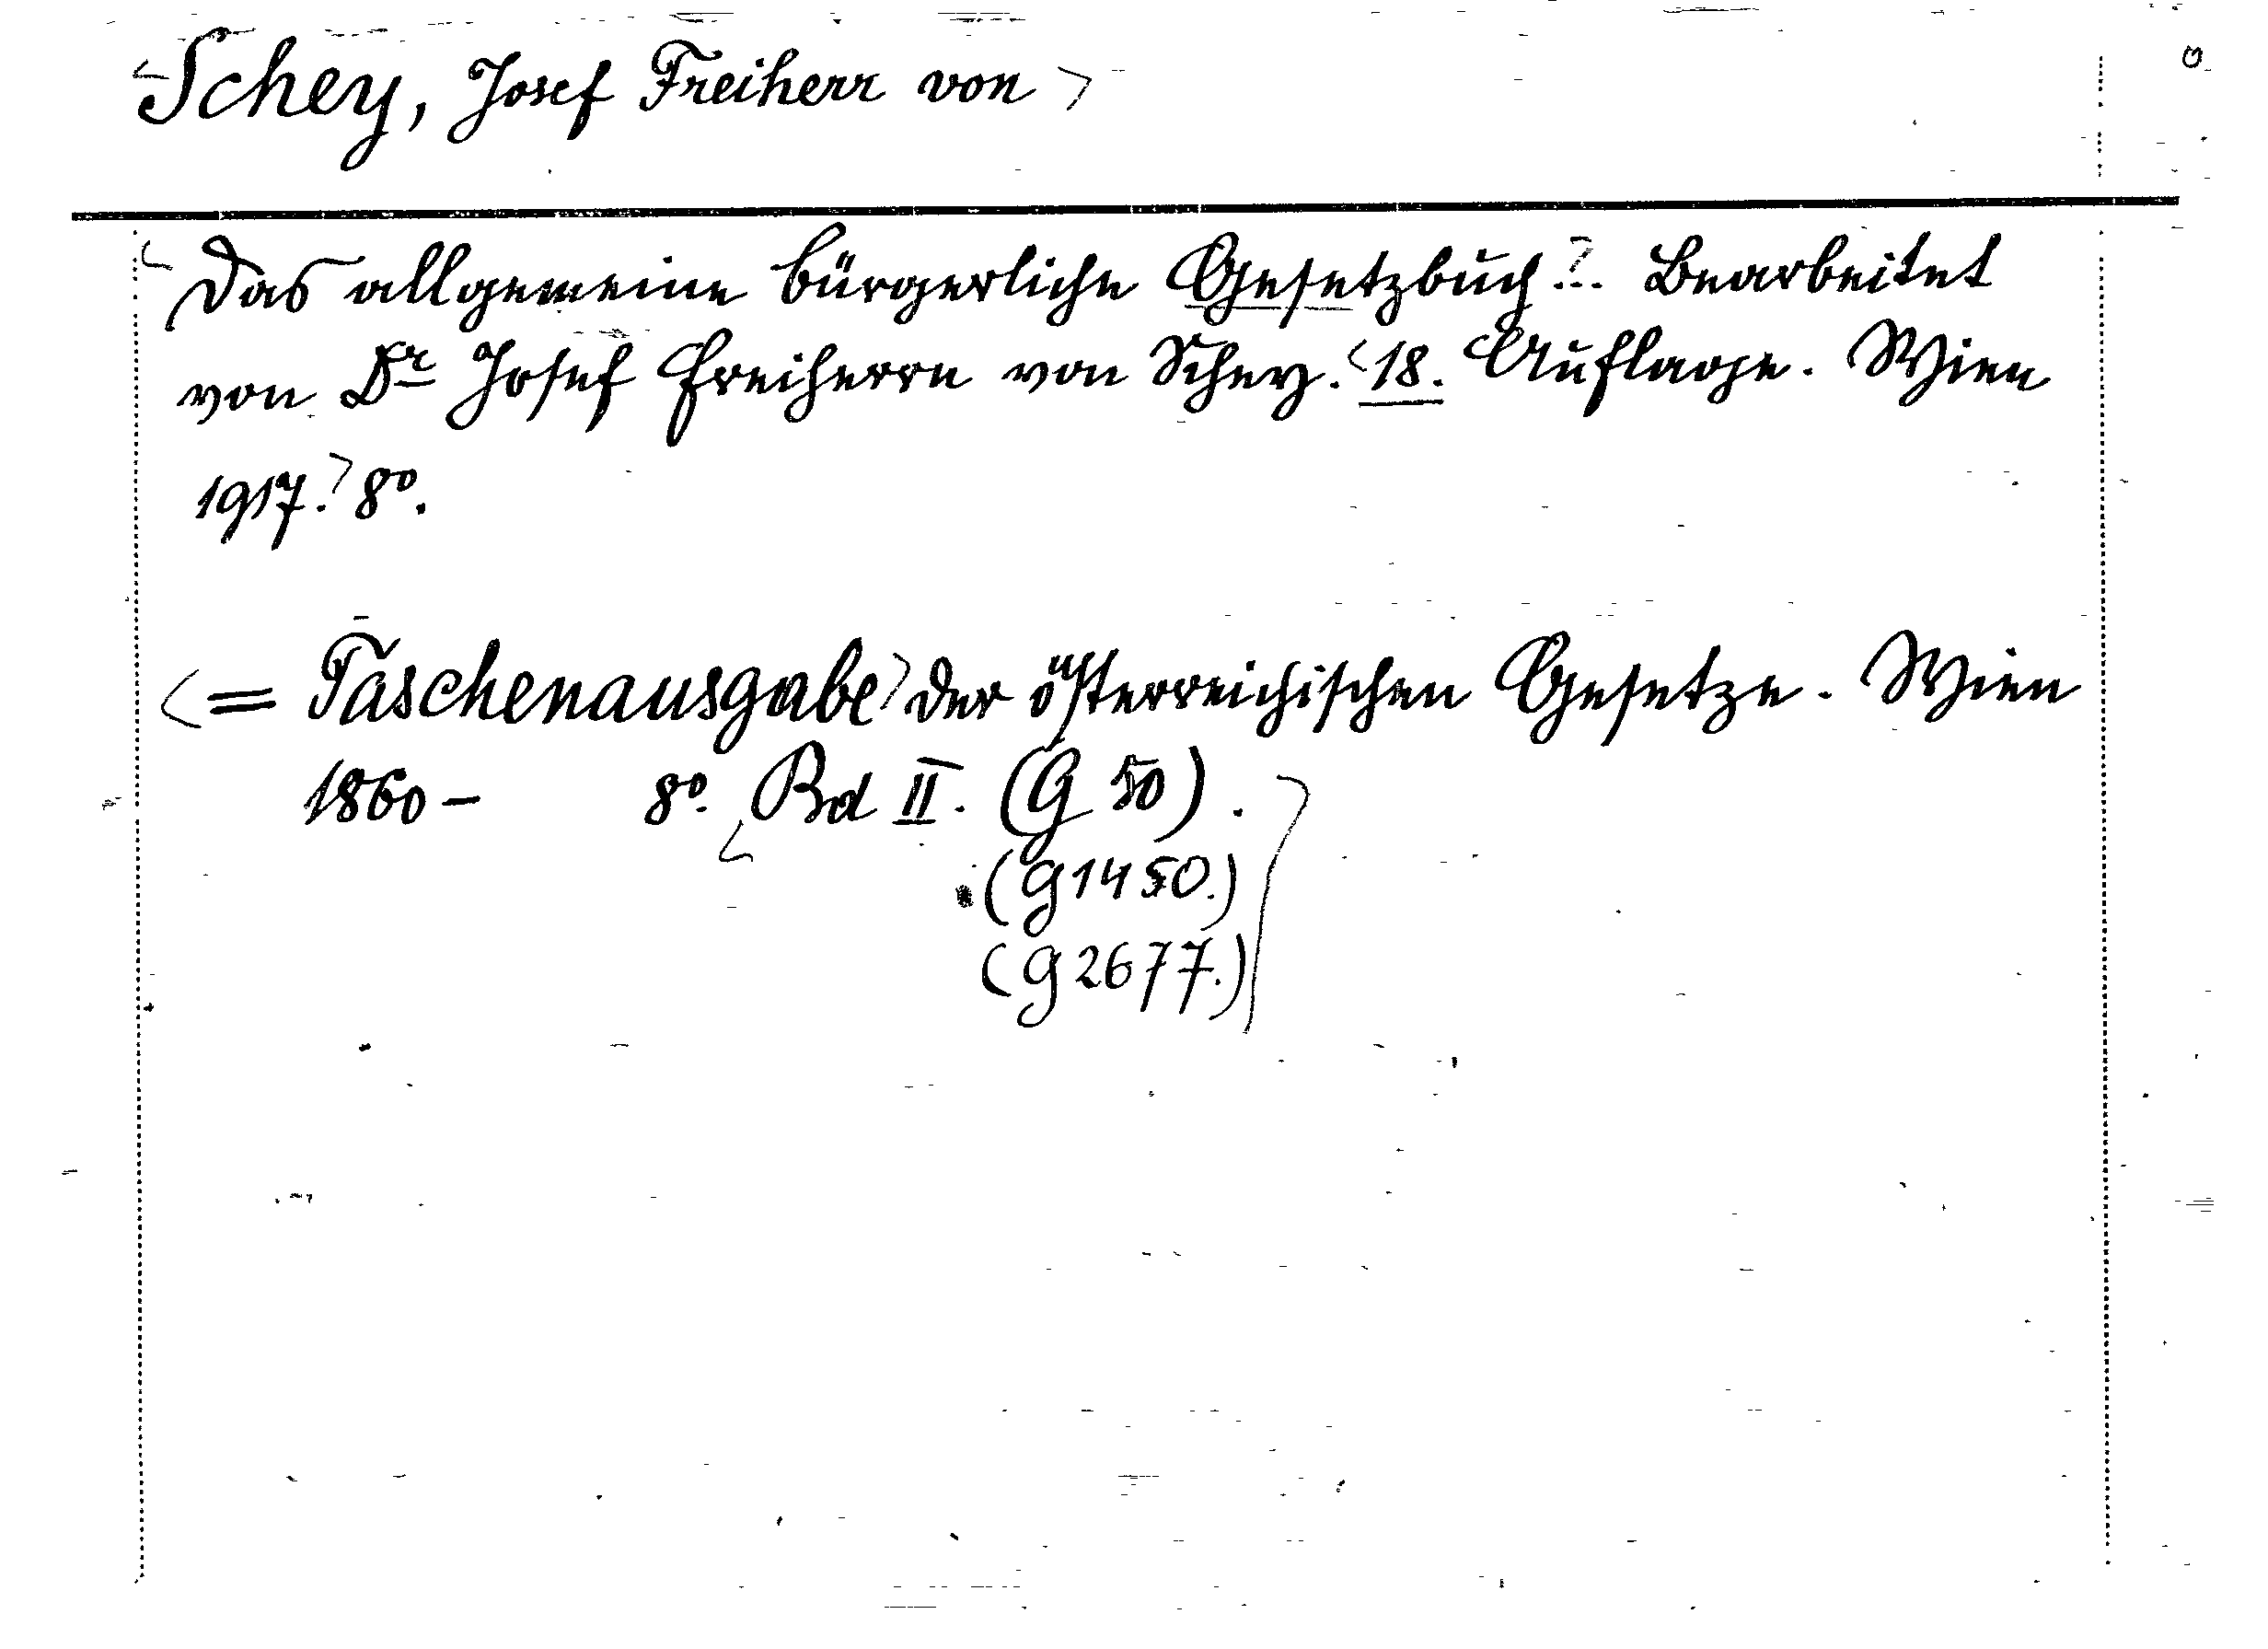 Schey, Josef Freiherr von
Das allgemeine bürgerliche Gesetzbuch... Bearbeitet
von Dr Josef Freiherrn von Schey. 18. Auflage. Wien
1917. 8°.
= Taschenausgabe der österreichischen Gesetze. Wien
1860 – 8°. Bd II. (G 50).
(G 1450.)
(G 2677.)